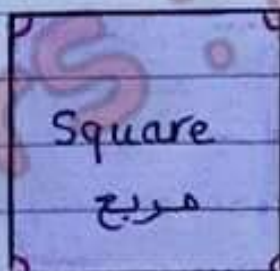 Square
مربع